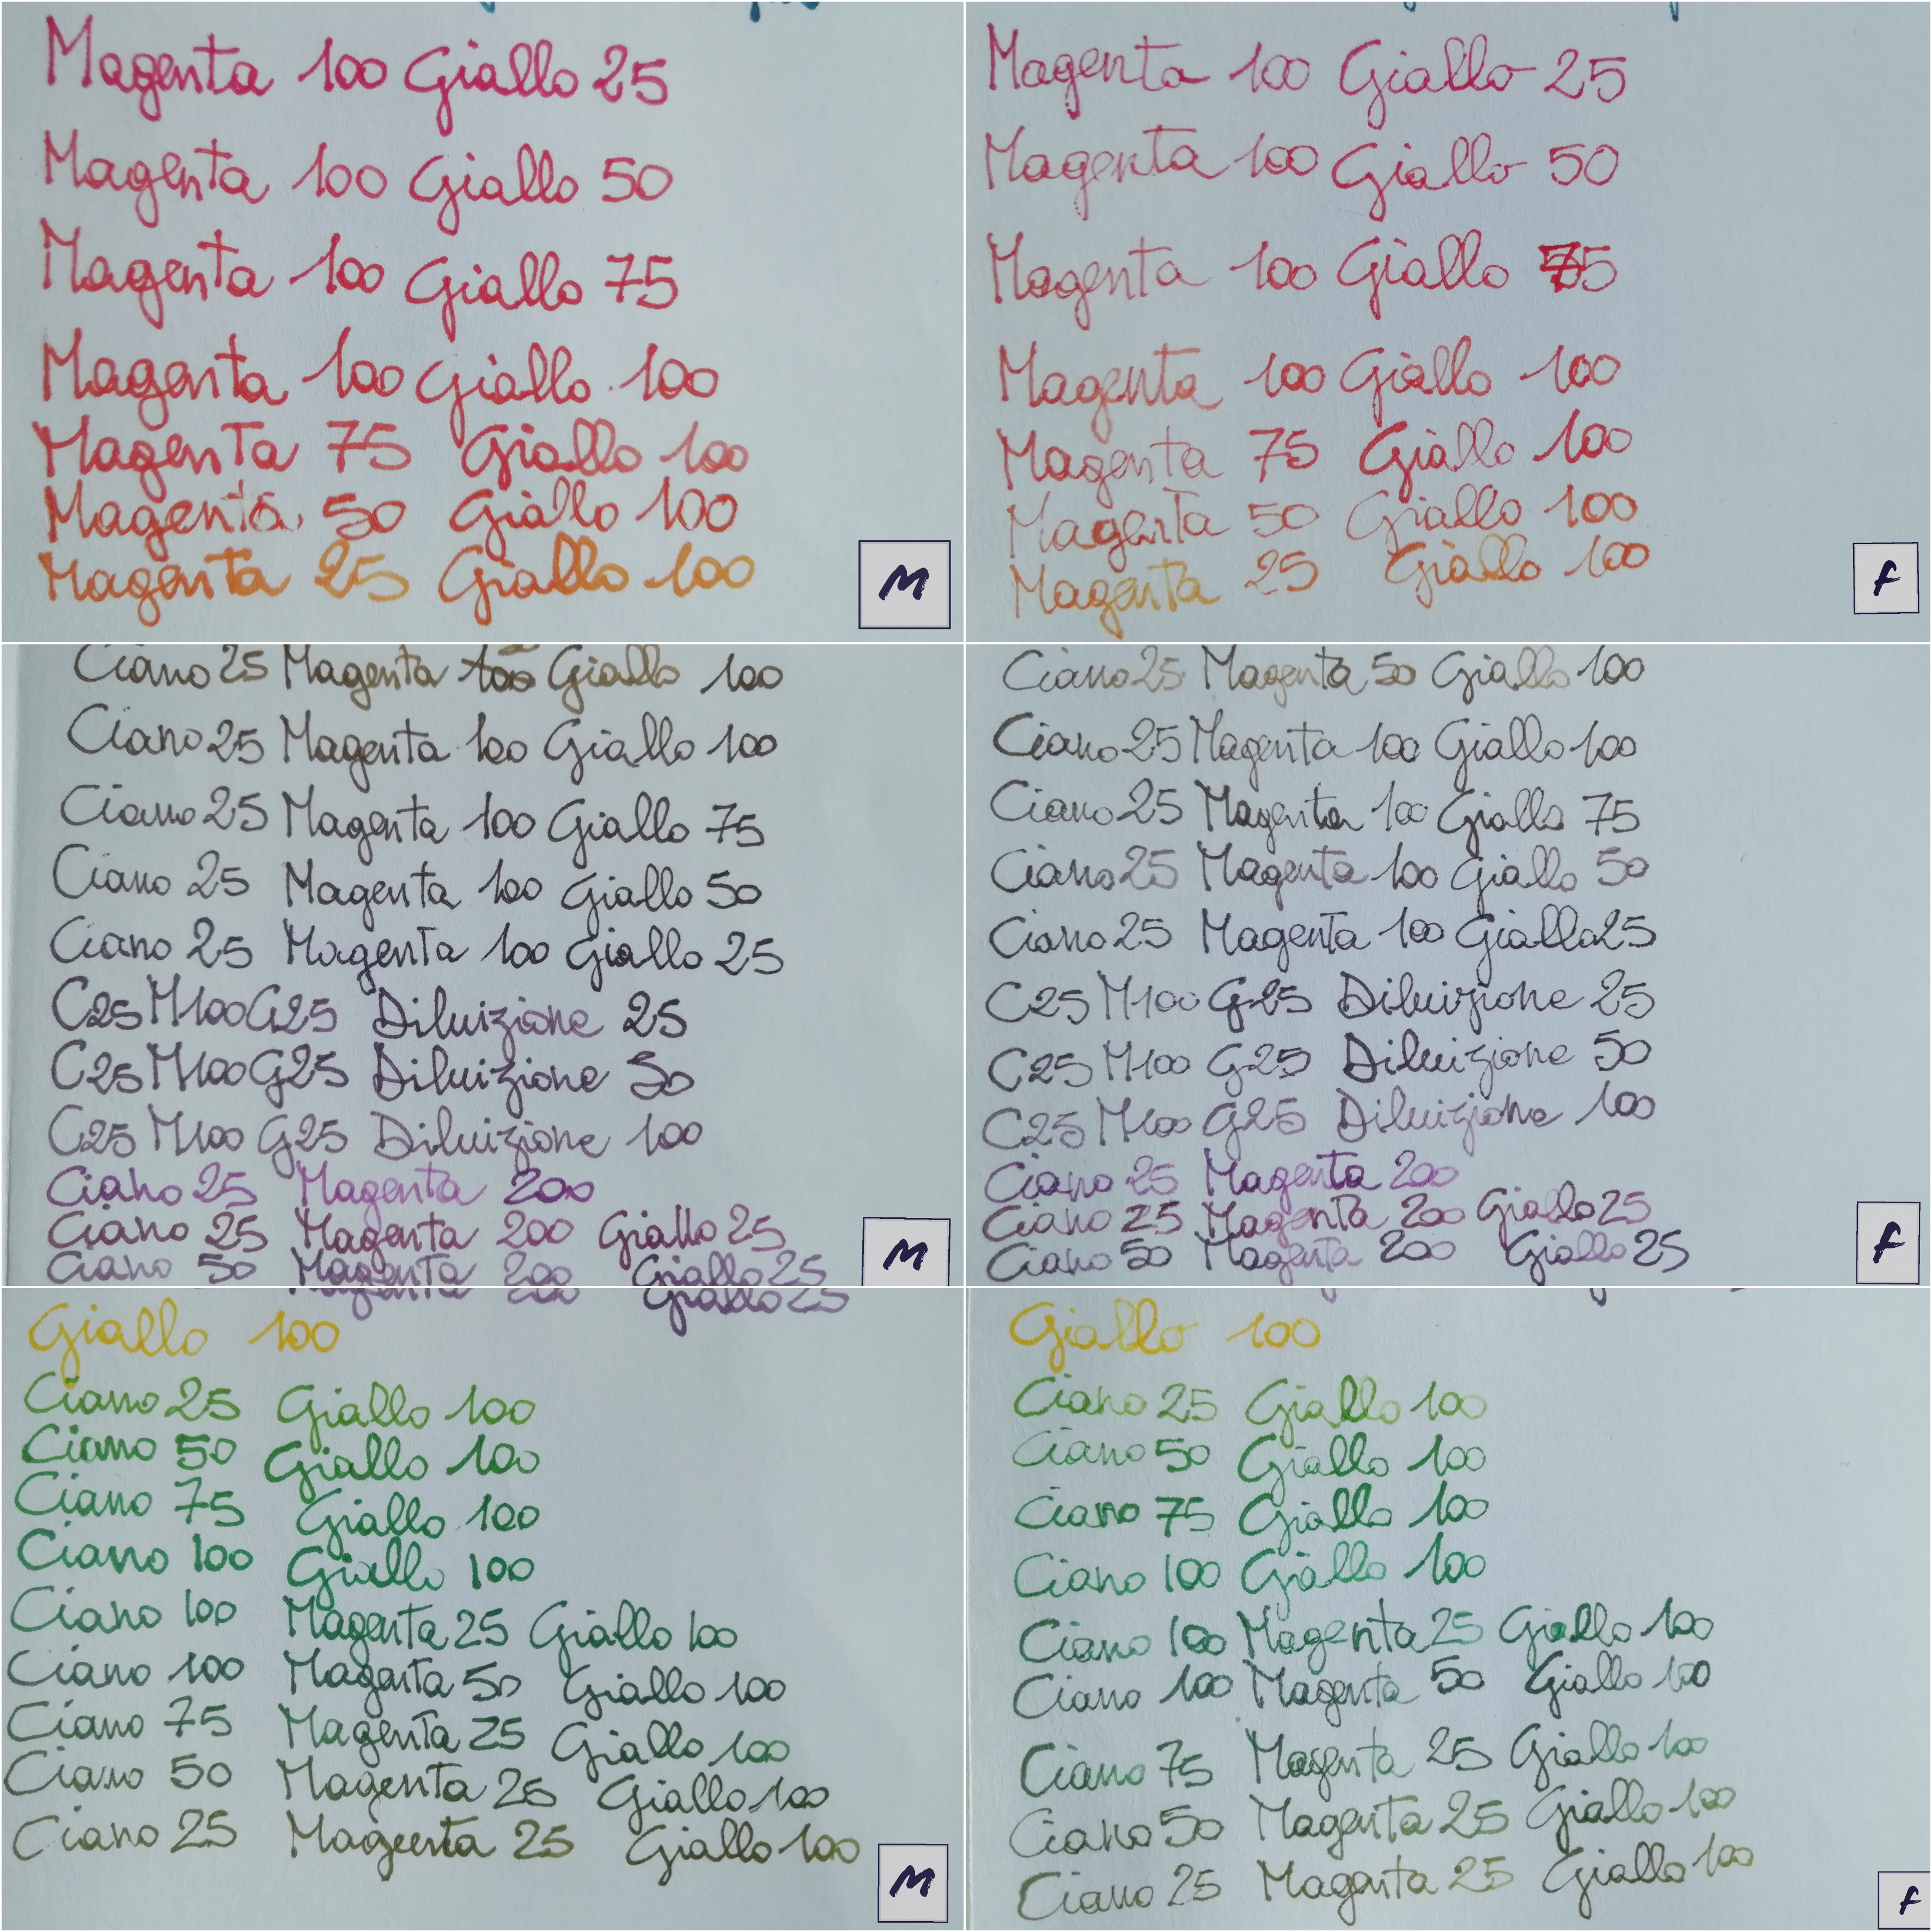 Magenta 100 Giallo 25
Magenta 100 Giallo 50
Magenta 100 Giallo 75
Magenta 100 Giallo 100
Magenta 75 Giallo 100
Magenta 50 Giallo 100
Magenta 25 Giallo 100
M
Magenta 100 Giallo 25
Magenta 100 Giallo 50
Magenta 100 Giallo 75
Magenta 100 Giallo 100
Magenta 75 Giallo 100
Magenta 50 Giallo 100
Magenta 25 Giallo 100
F
Ciano 25 Magenta Giallo 100
Ciano 25 Magenta 100 Giallo 100
Ciano 25 Magenta 100 Giallo 75
Ciano 25 Magenta 100 Giallo 50
Ciano 25 Magenta 100 Giallo 25
C25 M100 G25 Diluizione 25
C25 M100 G25 Diluizione 50
C25 M100 G25 Diluizione 100
Ciano 25 Magenta 200
Ciano 25 Magenta 200 Giallo 25
Ciano 50 Magenta 200 Giallo 25
M
Ciano 25 Magenta 50 Giallo 100
Ciano 25 Magenta 100 Giallo 100
Ciano 25 Magenta 100 Giallo 75
Ciano 25 Magenta 100 Giallo 50
Ciano 25 Magenta 100 Giallo 25
C25 M100 G25 Diluizione 25
C25 M100 G25 Diluizione 50
C25 M100 G25 Diluizione 100
Ciano 25 Magenta 200
Ciano 25 Magenta 200 Giallo 25
Ciano 50 Magenta 200 Giallo 25
F
Magenta 200 Giallo 25
Giallo 100
Ciano 25 Giallo 100
Ciano 50 Giallo 100
Ciano 75 Giallo 100
Ciano 100 Giallo 100
Ciano 100 Magenta 25 Giallo 100
Ciano 100 Magenta 50 Giallo 100
Ciano 75 Magenta 25 Giallo 100
Ciano 50 Magenta 25 Giallo 100
Ciano 25 Magenta 25 Giallo 100
M
Giallo 100
Ciano 25 Giallo 100
Ciano 50 Giallo 100
Ciano 75 Giallo 100
Ciano 100 Giallo 100
Ciano 100 Magenta 25 Giallo 100
Ciano 100 Magenta 50 Giallo 100
Ciano 75 Magenta 25 Giallo 100
Ciano 50 Magenta 25 Giallo 100
Ciano 25 Magenta 25 Giallo 100
F